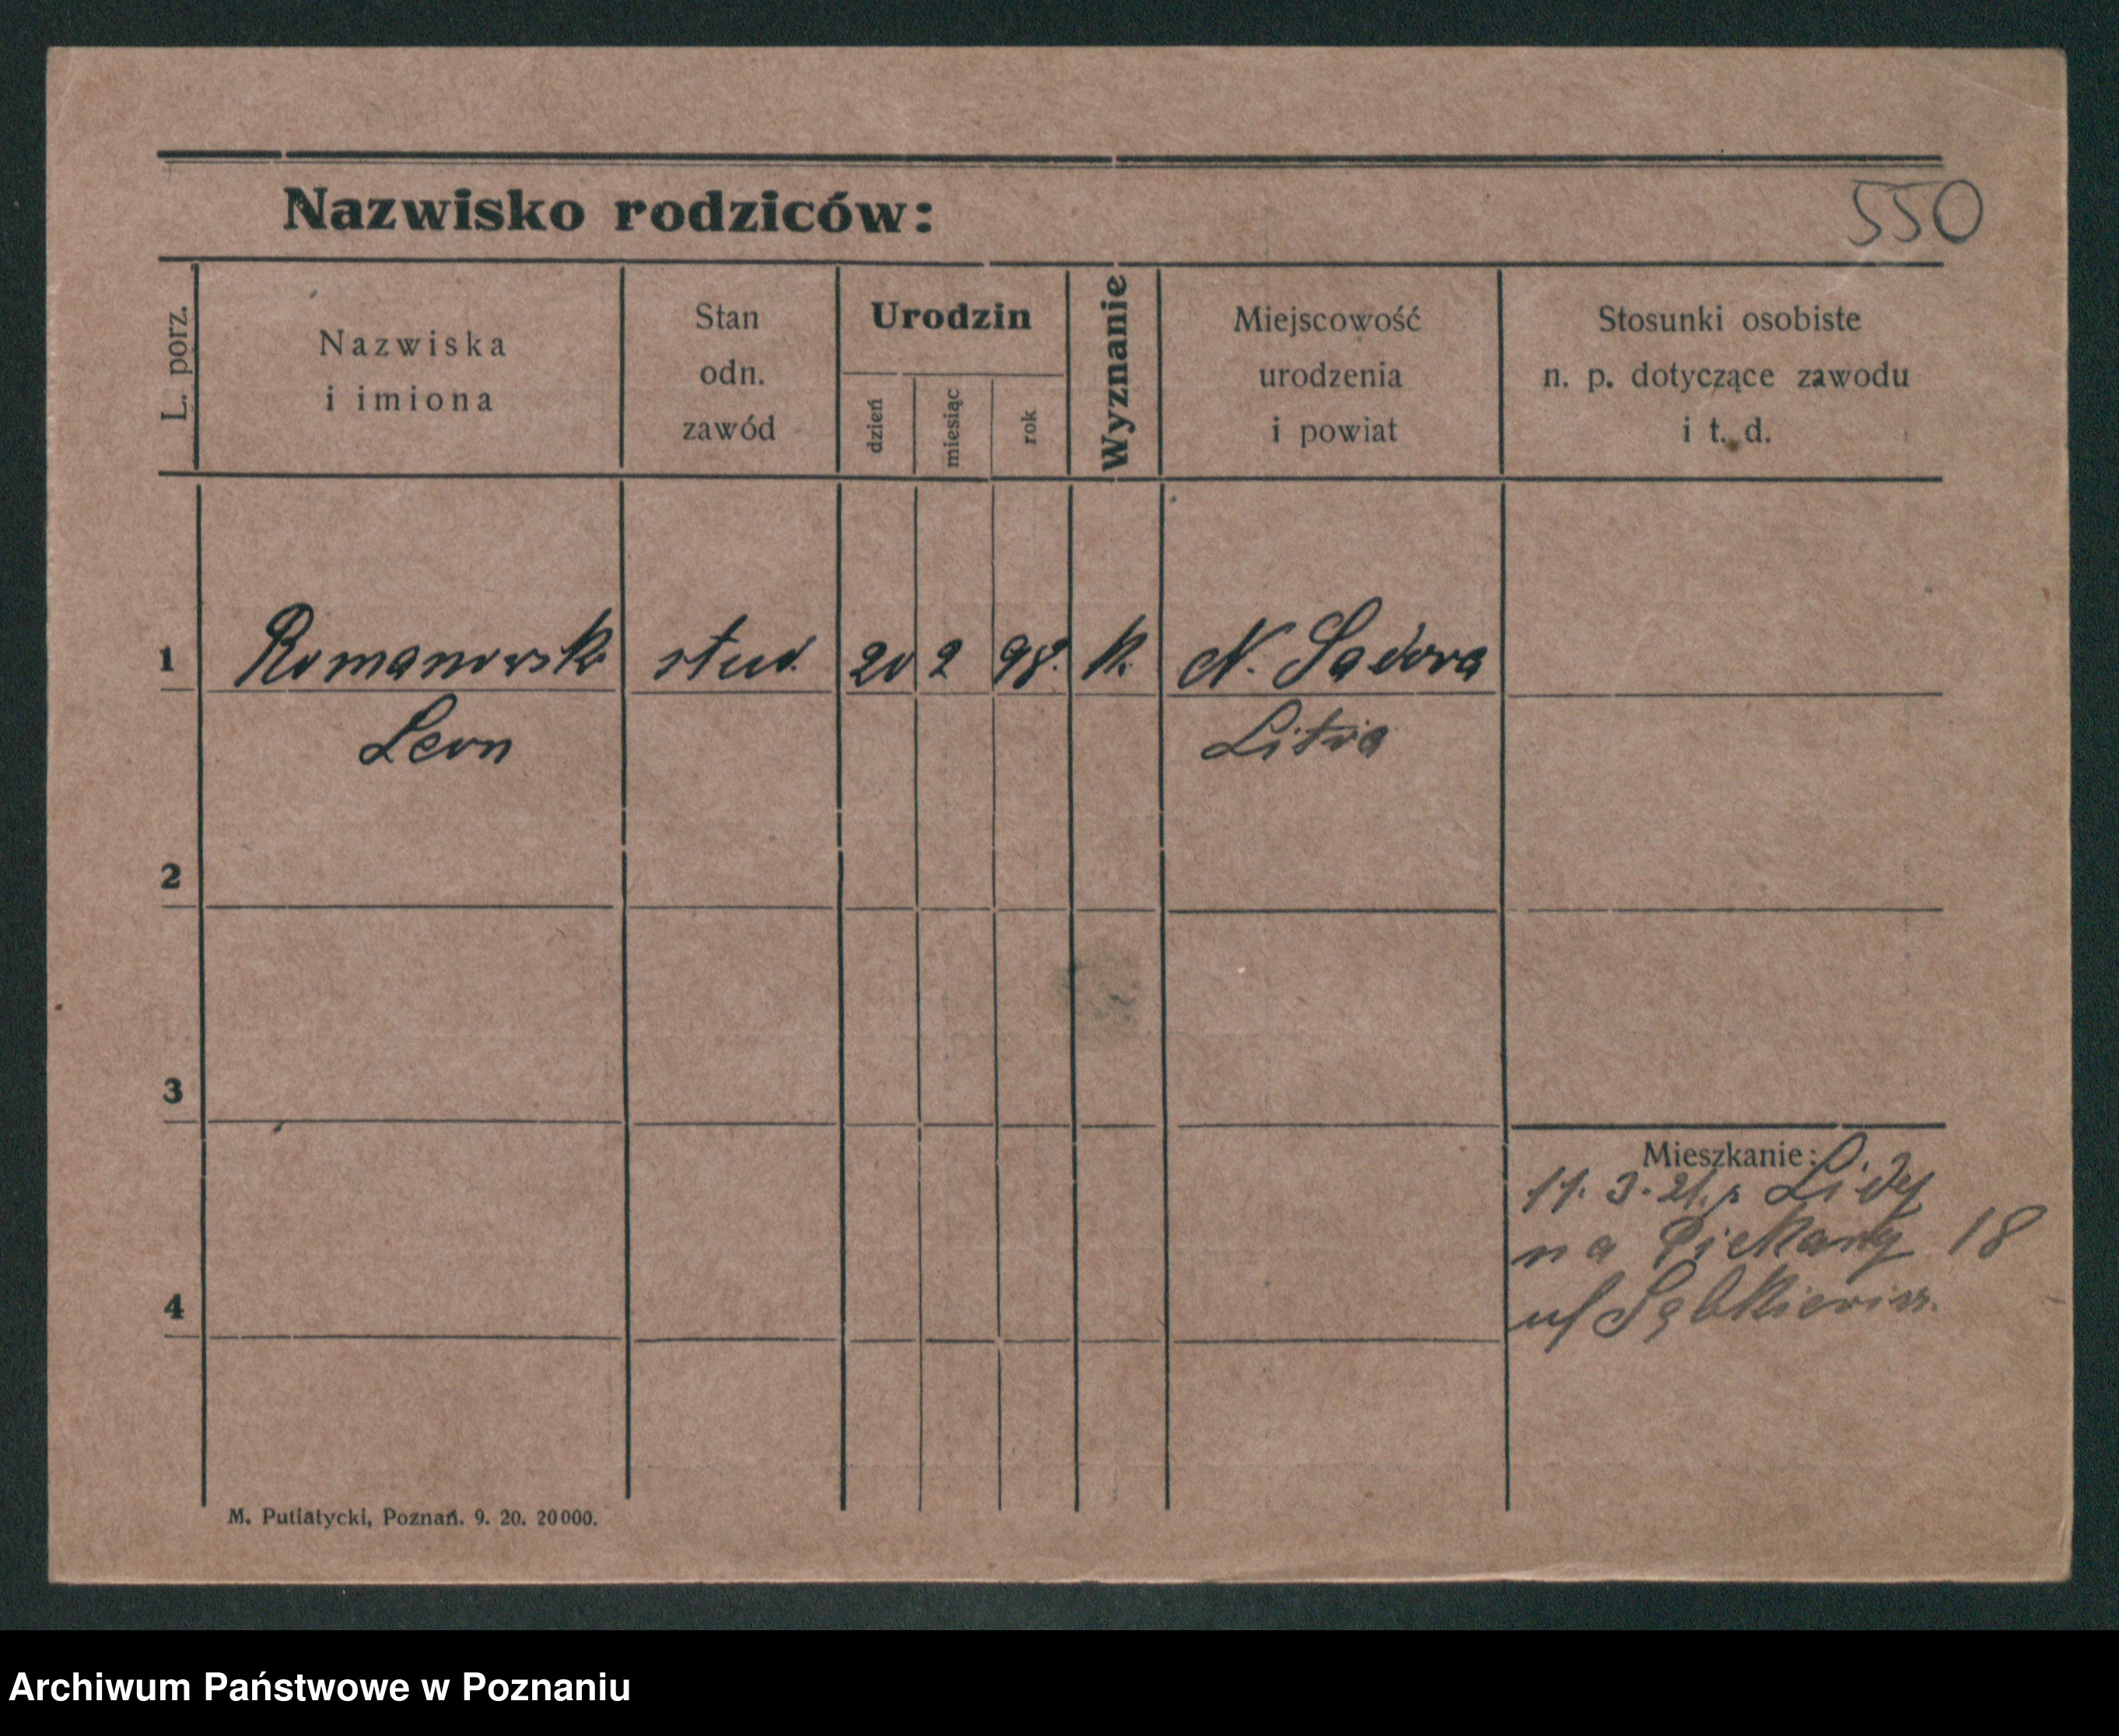 Nazwisko rodziców:
550
L. porz.
Nazwiska
i imiona
Stan
odn.
zawód
Urodzin
dzień
miesiąc
rok
Wyznanie
Miejscowość
urodzenia
i powiat
Stosunki osobiste
n. p. dotyczące zawodu
i t. d.
1 Romanowski stud. 20 2 98. k. N. Sadova
Leon Litwa
2
3
Mieszkanie:
11. 3. 21. z
na Piekary 18
4
M. Putiatycki, Poznań. 9. 20. 20000.
Archiwum Państwowe w Poznaniu